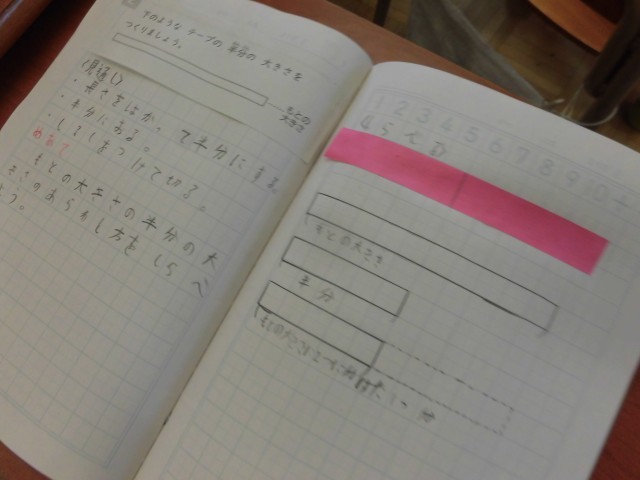 下のような テープの 半分の 大きさを
つくりましょう。
もとの
大きさ
(見通し)
・長さをはかって半分にする
・半分におる。
・しるしをつけて切る。
めあて
もとの大きさの半分の大
きさのあらわし方をしらべ
よう。
1 2 3 4 5 6 7 8 9 10
しらべ
もとの大きさ
半分
もとの大きさを二つに分けた1つ分